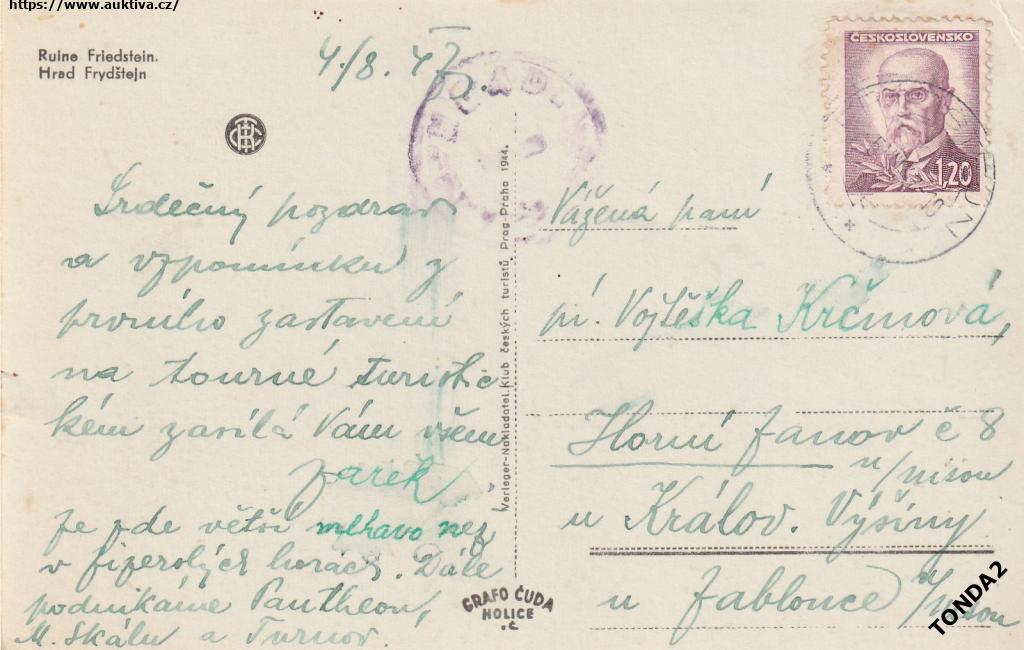 https://www.auktiva.cz/
Ruine Friedstein.
Hrad Frydštejn
4/8. 47
ČESKOSLOVENSKO
1,20
Srdečný pozdrav
a vzpomínku z
prvního zastavení
na tourné turistic
kém zasílá Vám všem
Jarek
Je zde větší mlhavo než
v jizerských horách. Dále
podnikáme Pantheon,
M. Skálu a Turnov.
Verleger-Nakladatel Klub českých turistů, Prag-Praha 1944.
GRAFO ČUDA
HOLICE
Vážená paní
pí. Vojtěška Krčmová,
Horní Janov č 8
n/nisou
u Králov. Výšiny
u Jablonce n/nisou
TONDA2